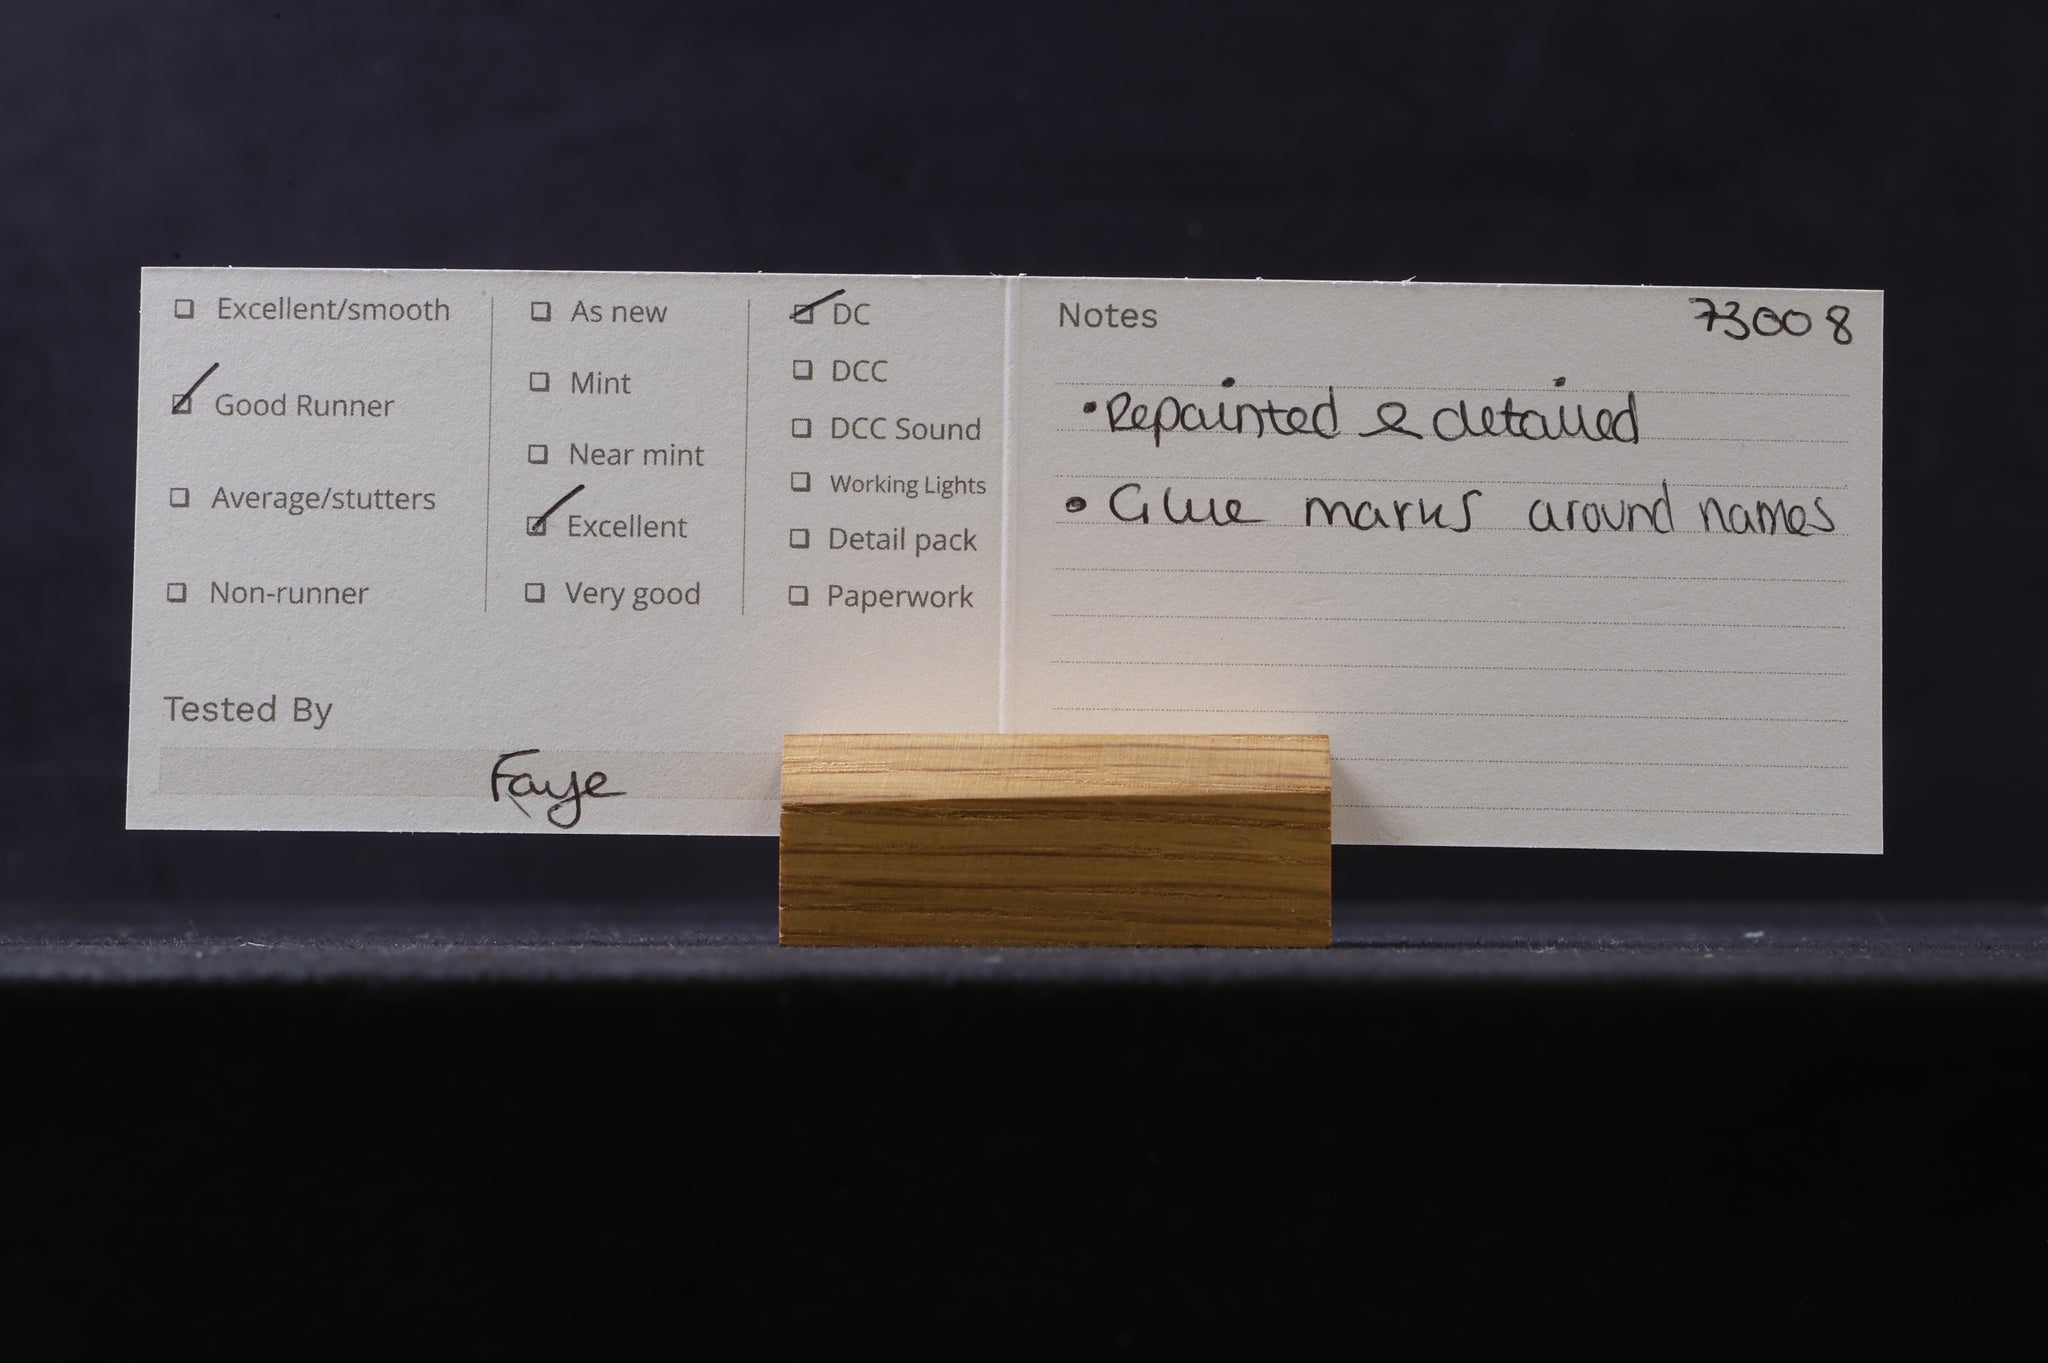 ☐ Excellent/smooth
☑ Good Runner
☐ Average/stutters
☐ Non-runner
☐ As new
☐ Mint
☐ Near mint
☑ Excellent
☐ Very good
☑ DC
☐ DCC
☐ DCC Sound
☐ Working Lights
☐ Detail pack
☐ Paperwork
Tested By
Faye
Notes
73008
• Repainted & detailed
• Glue marks around names